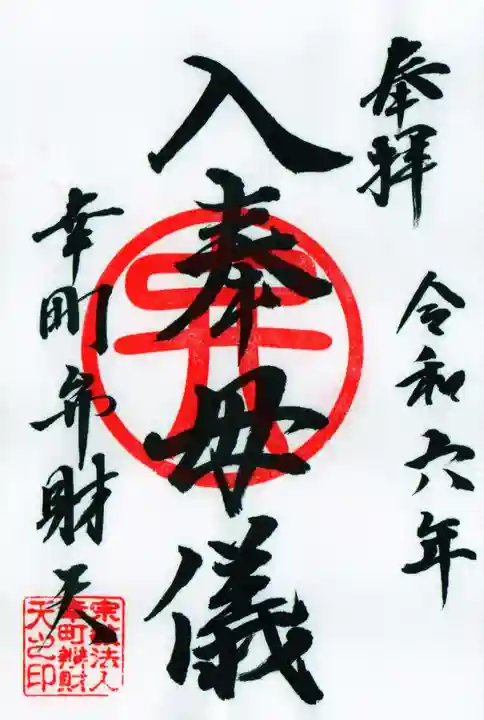 奉拝
令和六年
入奉母儀
幸町弁財天
宗教法人
幸町辨財
天之印